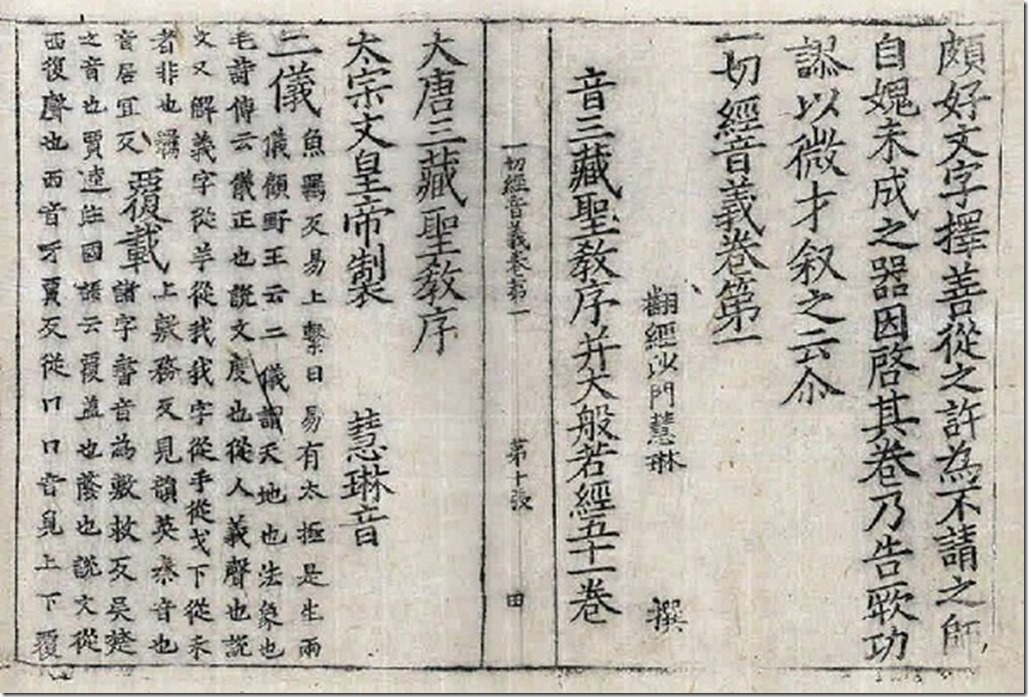 頗好文字擇善從之許為不請之師
自媿未成之器因啓其卷乃告歟功
謬以微才叙之云尒
一切經音義卷第一
翻經沙門慧琳 撰
音三藏聖教序并大般若經五十一卷
一切經音義卷第一 第十張 田
大唐三藏聖教序
太宗文皇帝製 慧琳音
二儀
魚羈反易上繫曰易有太極是生兩
儀顧野王云二儀謂天地也法象也
毛詩傳云儀正也說文度也從人義聲也說
文又解義字從羊從我我字從手從戈下從禾
者非也羈
音居宜反
覆載
上敷務反見韻英秦音也
諸字書音為敷救反吳楚
之音也賈逵註國語云覆盖也蔭也說文從
西復聲也西音牙賈反從冂冂音覓上下覆